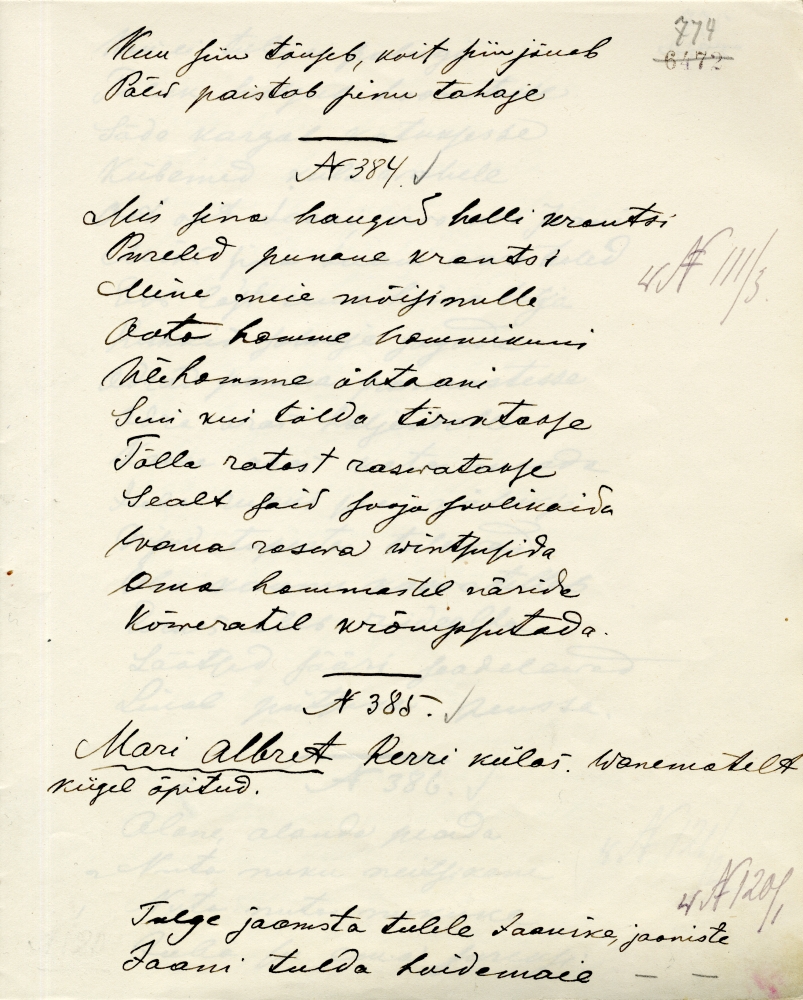 774
6472
Kuu siin tõuseb, koit siin jõuab
Päew paistab sinu tahaje
N 384.
Mis sina haugud halli krantsi
Pureled punane krantsi
Mine meie mõisinulle
Oota homme hommikuni
Ülehomme õhtaani
Suni kui tõlda tõrwatakse
Tõlla ratast raswatakse
Sealt said sooja soolikaida
Wana raswa wintsusida
Oma hammastel närida
Kõweratel krõmpsutada.
N 111/3.
N 385.
Mari Albret Kerri külas. Wanematelt
kiigel õpitud.
N 120/1
Tulge jaamsta tulele Jaanike, jaaniste
Jaani tulda hoidemaie — —